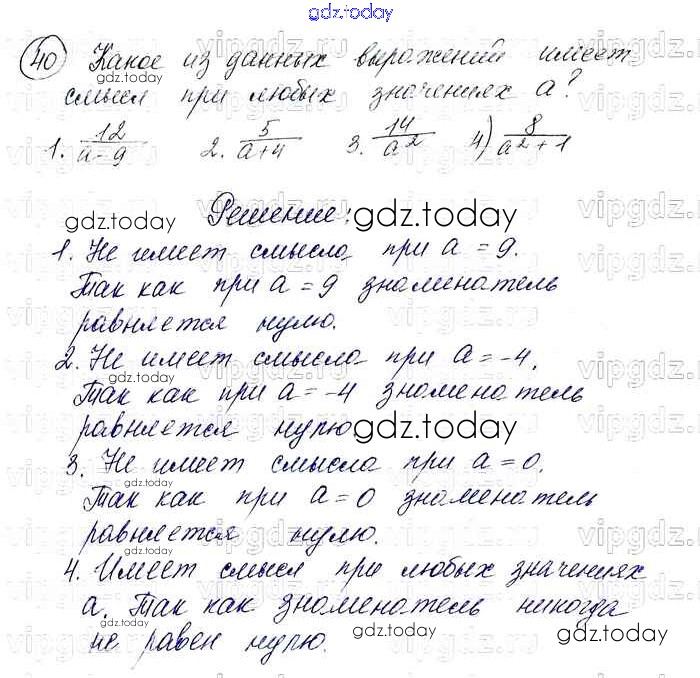 gdz.today
40 Какое из данных выражений имеет
смысл при любых значениях a?
1. 12/(a-9) 2. 5/(a+4) 3. 14/a² 4) 8/(a²+1)
Решение:
1. Не имеет смысла при a = 9.
Так как при a = 9 знаменатель
равняется нулю.
2. Не имеет смысла при a = -4.
Так как при a = -4 знаменатель
равняется нулю
3. Не имеет смысла при a = 0.
Так как при a = 0 знаменатель
равняется нулю.
4. Имеет смысл при любых значениях
a. Так как знаменатель никогда
не равен нулю.
gdz.today
gdz.today
gdz.today
gdz.today
gdz.today
gdz.today
gdz.today
gdz.today
gdz.today
gdz.today
vipgdz.ru